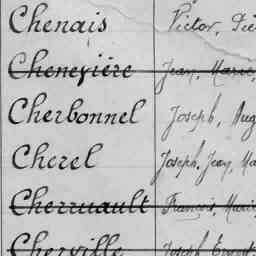 Chenais Victor,
Chenevière Jean, Marie,
Cherbonnel Joseph, Aug
Cherel Joseph, Jean, Ma
Cherruault Francois, Marie
Cherville Joseph Ernest